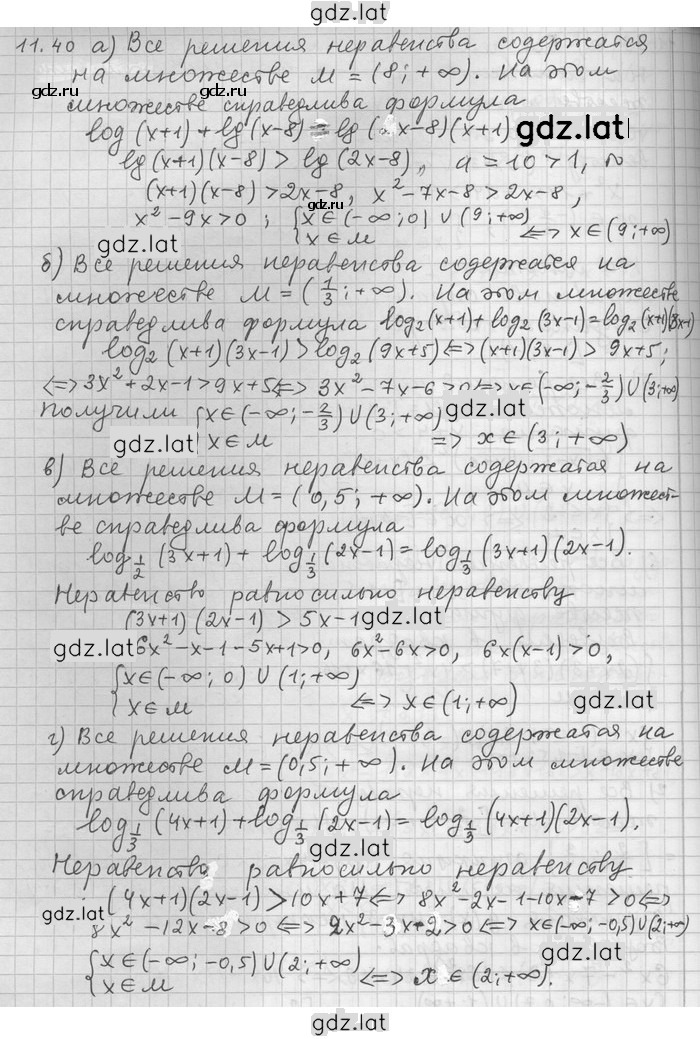 gdz.lat
11.40 а) Все решения неравенства содержатся
на множестве M = (8; +∞). На этом
gdz.lat
gdz.lat
множестве справедлива формула
log (x+1) + lg (x-8) = lg (x-8)(x+1)
gdz.lat
lg (x+1)(x-8) > lg (2x-8), a = 10 > 1, ~
(x+1)(x-8) > 2x-8, x² -7x-8 > 2x-8,
x² -9x>0 ; {x∈(-∞;0) ∪ (9;+∞)
x∈M <=> x∈(9;+∞)
gdz.lat
б) Все решения неравенства содержатся на
множестве M = (1/3; +∞). На этом множестве
справедлива формула log₂(x+1)+log₂(3x-1)=log₂(x+1)(3x+1)
log₂ (x+1)(3x-1) > log₂ (9x+5) <=> (x+1)(3x-1) > 9x+5;
<=> 3x²+2x-1>9x+5 <=> 3x²-7x-6>0 <=> x∈(-∞;-2/3)∪(3;+∞)
Получили {x∈(-∞;-2/3)∪(3;+∞)
gdz.lat
gdz.lat
x∈M => x∈(3;+∞)
в) Все решения неравенства содержатся на
множестве M = (0,5; +∞). На этом множест-
ве справедлива формула
log_1/2 (3x+1) + log_1/3 (2x-1) = log_1/3 (3x+1)(2x-1).
Неравенство равносильно неравенству
(3x+1)(2x-1) > 5x-1
gdz.lat
gdz.lat
6x²-x-1-5x+1>0, 6x²-6x>0, 6x(x-1)>0,
{x∈(-∞;0) ∪ (1;+∞)
x∈M <=> x∈(1;+∞)
gdz.lat
г) Все решения неравенства содержатся на
множестве M=(0,5;+∞). На этом множестве
справедлива формула
log_1/3 (4x+1)+log_1/3 (2x-1) = log_1/3 (4x+1)(2x-1).
gdz.lat
Неравенство равносильно неравенству
(4x+1)(2x-1)>10x+7 <=> 8x²-2x-1-10x-7 >0 <=>
gdz.lat
8x²-12x-8>0 <=> 2x²-3x-2>0 <=> x∈(-∞;-0,5)∪(2;+∞)
{x∈(-∞;-0,5)∪(2;+∞)
x∈M <=> x∈(2;+∞).
gdz.lat
gdz.lat